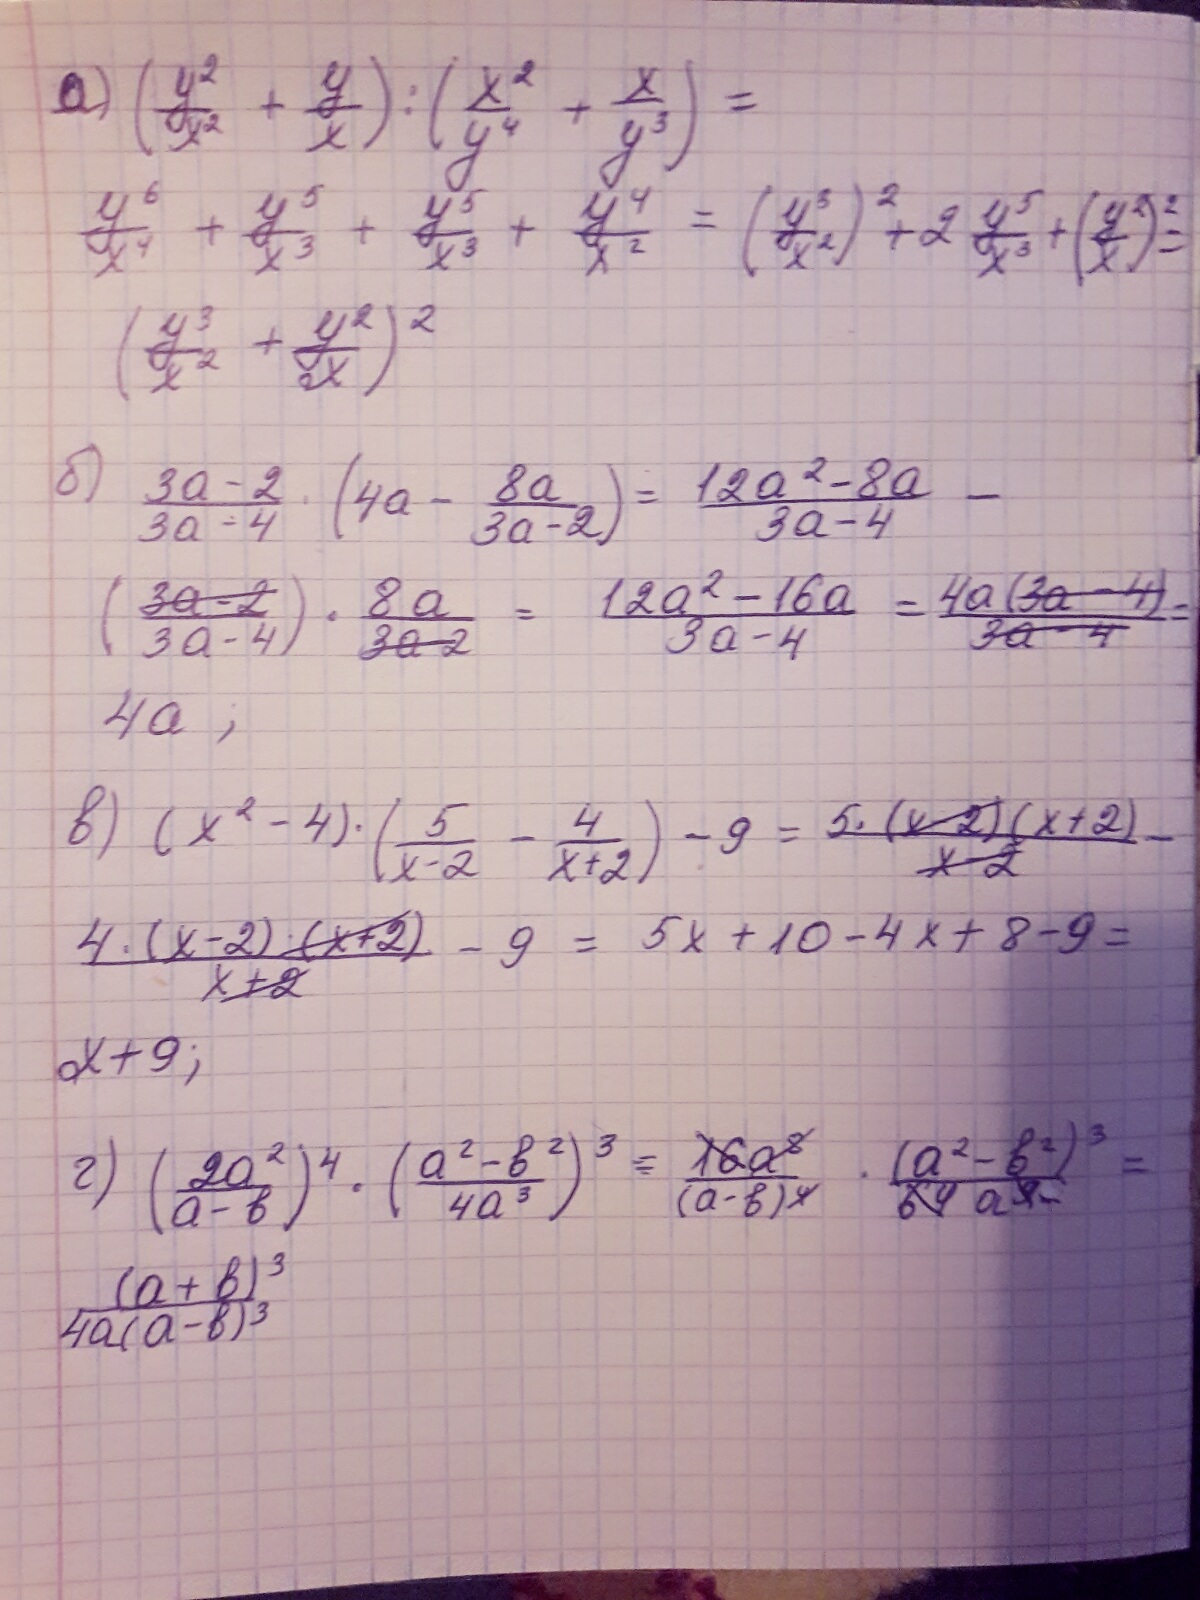 а) (y²/x² + y/x) : (x²/y⁴ + x/y³) =
y⁶/x⁴ + y⁵/x³ + y⁵/x³ + y⁴/x² = (y³/x²)² + 2 y⁵/x³ + (y²/x)² =
(y³/x² + y²/x)²
б) (3a-2)/(3a-4) · (4a - 8a/(3a-2)) = (12a²-8a)/(3a-4) -
((3a-2)/(3a-4)) · 8a/(3a-2) = (12a²-16a)/(3a-4) = 4a(3a-4)/(3a-4) =
4a ;
в) (x²-4)·(5/(x-2) - 4/(x+2)) - 9 = 5·(x-2)(x+2)/(x-2) -
4·(x-2)·(x+2)/(x+2) - 9 = 5x+10-4x+8-9 =
x+9;
г) (2a²/(a-в))⁴ · ((a²-в²)/4a³)³ = 16a⁸/(a-в)⁴ · (a²-в²)³/64a⁹ =
(a+в)³/4a(a-в)³